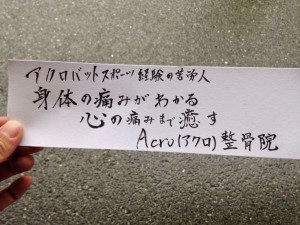 アクロバットスポーツ経験の苦労人
身体の痛みがわかる
心の痛みまで癒す
Acro(アクロ)整骨院